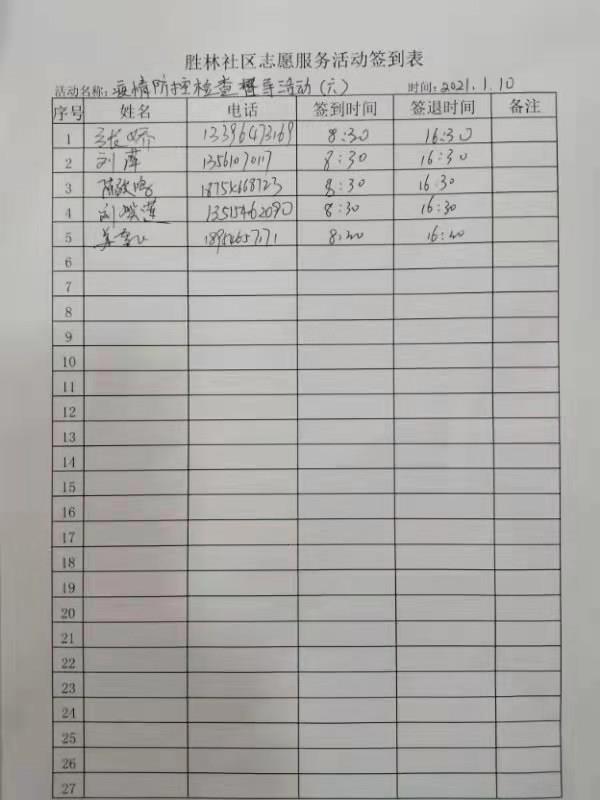 胜林社区志愿服务活动签到表
活动名称：疫情防控检查督导活动(六) 时间：2021.1.10
序号 姓名 电话 签到时间 签退时间 备注
1 张娇 13396473169 8:30 16:30
2 刘萍 13561070117 8:30 16:30
3 8:30 16:30
4 刘 13515462090 8:30 16:30
5 8:30 16:30
6
7
8
9
10
11
12
13
14
15
16
17
18
19
20
21
22
23
24
25
26
27